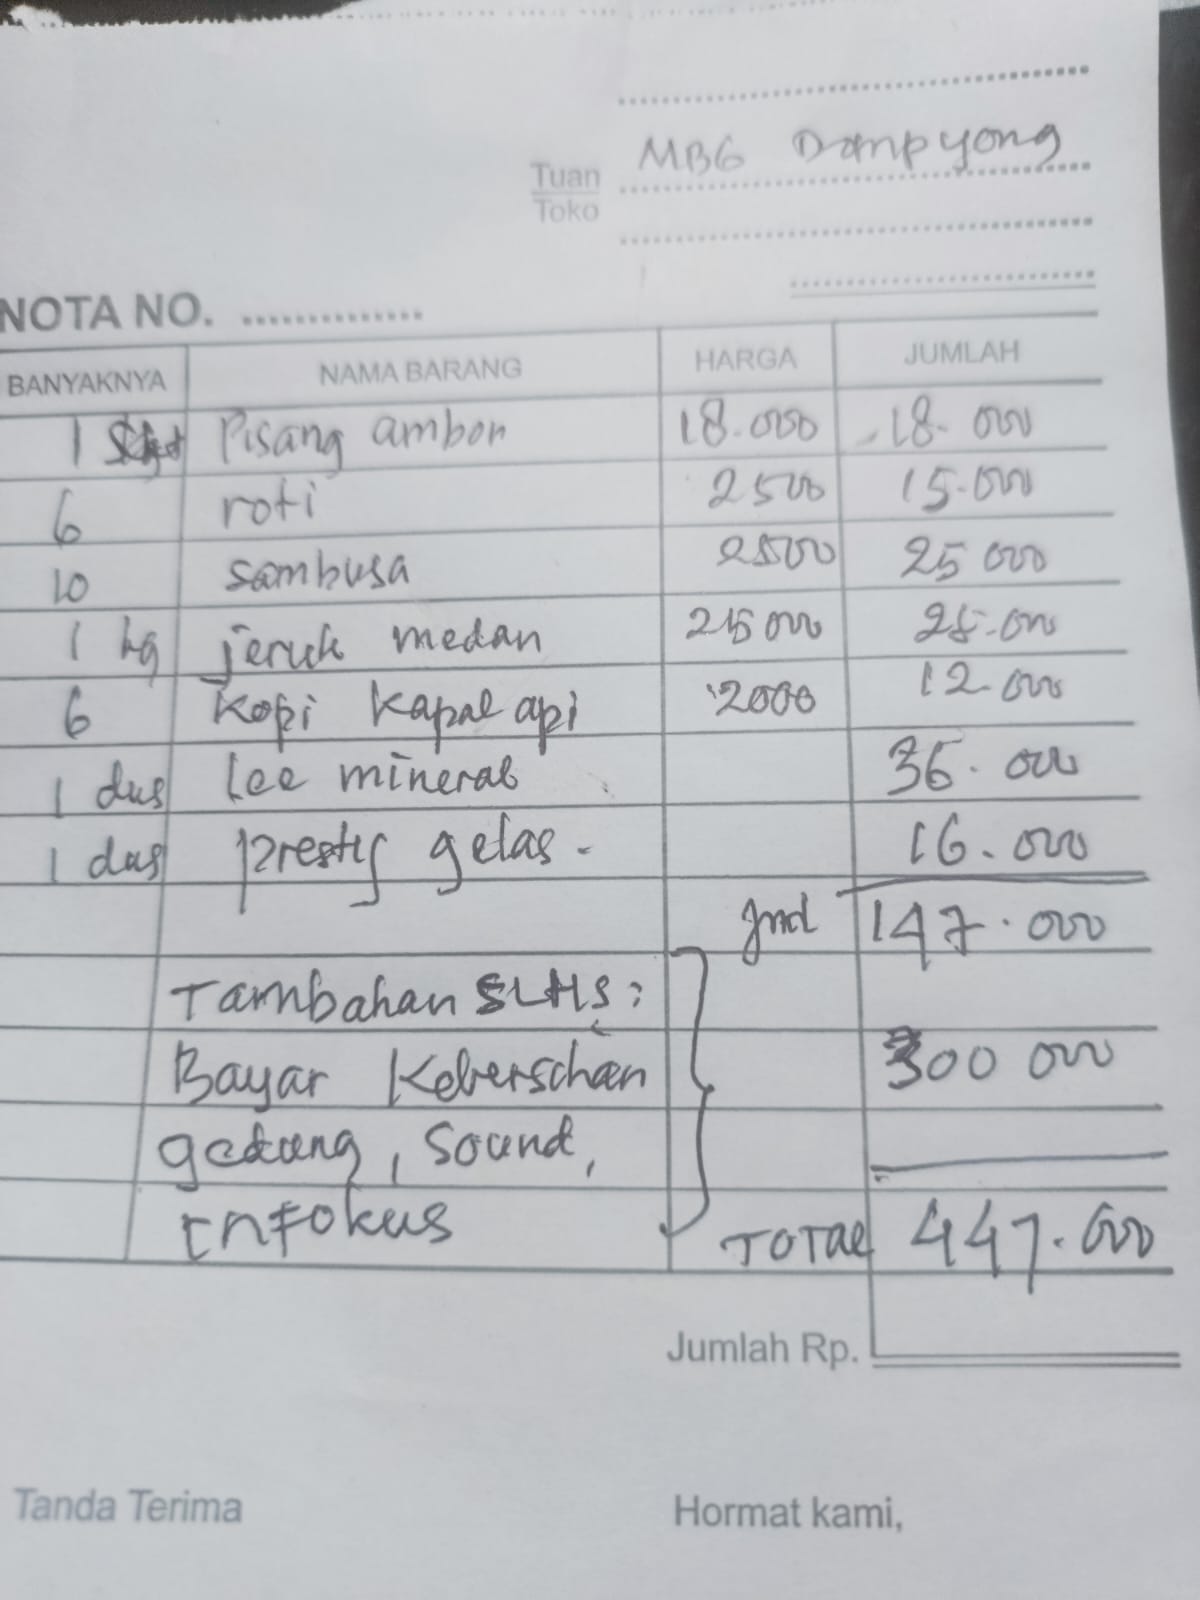 MBG Dampyong
Tuan
Toko
NOTA NO.
BANYAKNYA NAMA BARANG HARGA JUMLAH
1 Pisang ambon 18.000 18.000
6 roti 2500 15.000
10 sambusa 2500 25 000
1 kg jeruk medan 25 000 25.000
6 Kopi Kapal api 2000 12.000
1 dus Lee mineral 36.000
1 dus prestij gelas. 16.000
Jml 147.000
Tambahan SLHS:
Bayar Keberschan 300 000
gedung, Sound,
Enfokus TOTAL 447.000
Jumlah Rp.
Tanda Terima Hormat kami,